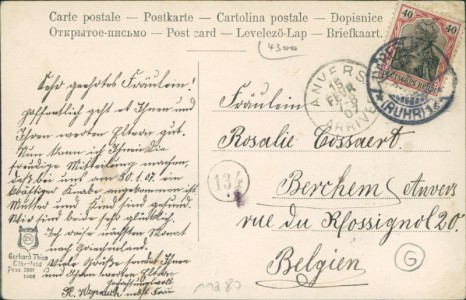 Carte postale – Postkarte – Cartolina postale – Dopisnice
Открытое-письмо – Post card – Levelező-Lap – Briefkaart.
4300
40 40
Deutsches Reich
(RUHR)
ANVERS
ARRIVÉE
Sehr geehrtes Fräulein!
Hoffentlich geht es Ihnen und
Ihren werten Eltern gut.
Nun kann ich Ihnen die
freudige Mitteilung machen,
daß bei uns am 30.1.07 ein
kräftiger Knabe angekommen ist
Mutter und Kind sind gesund.
Wir sind beide sehr glücklich.
Ich reise nächsten Monat
nach Griechenland.
Viele Grüße sendet Ihnen
und Ihren werten Eltern
nebst Frau
Fräulein
Rosalie Cossaert
Berchem Anvers
rue du Rhossignol 20.
Belgien
134
G
Gerhard Thien
Elberfeld